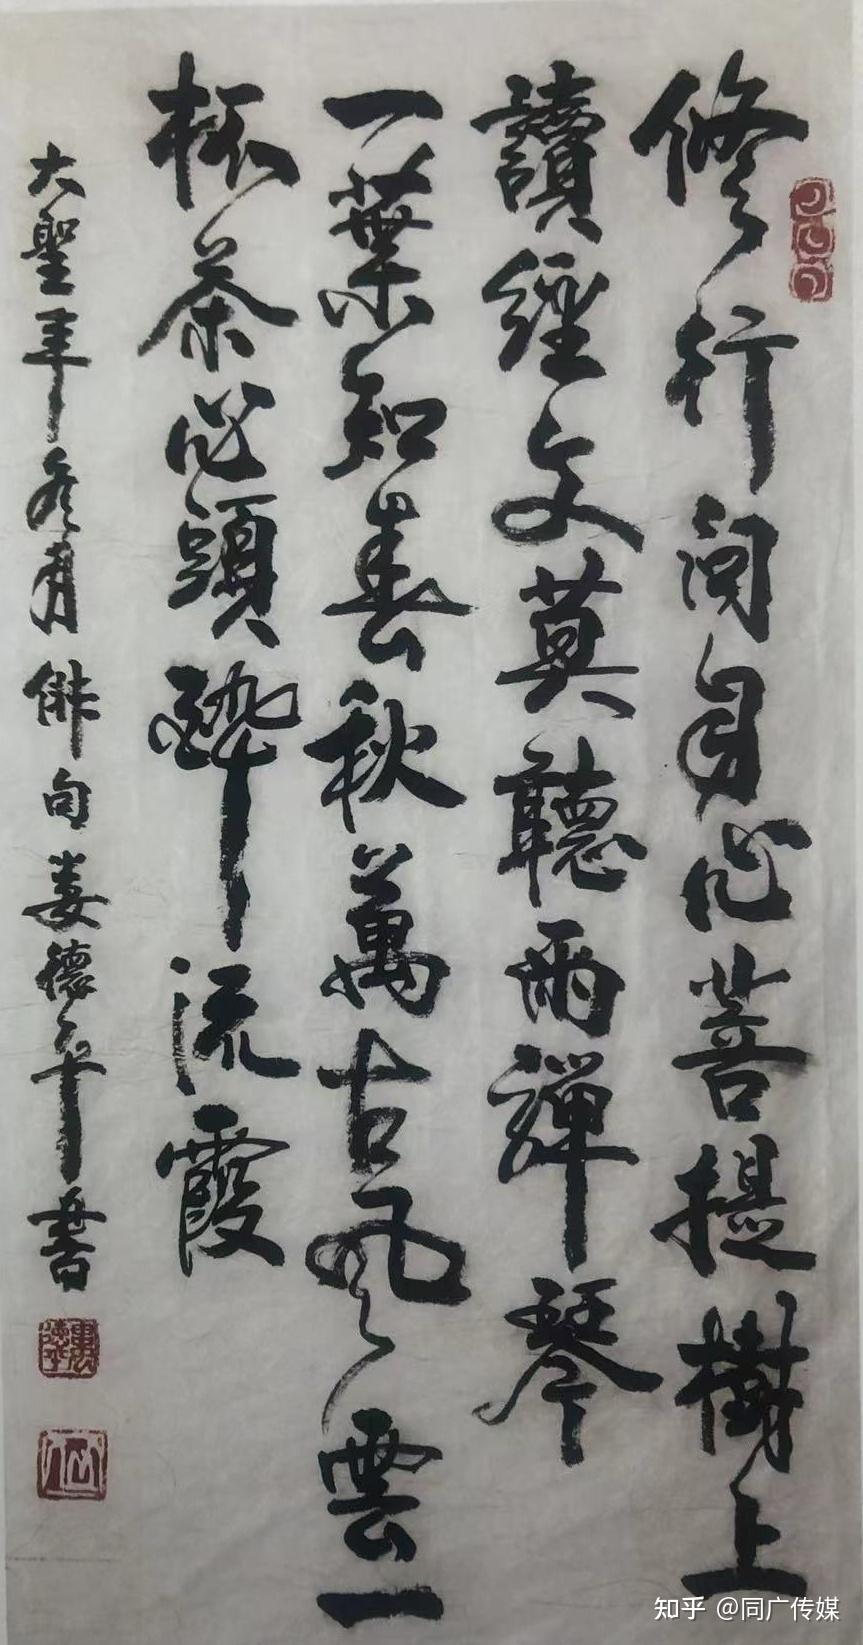 修行问自心菩提樹上
讀經文莫聽雨禪琴
一葉知春秋萬古風雲一
杯茶心頭醉流霞
大聖年冬月俳句娄德平書
知乎 @同广传媒